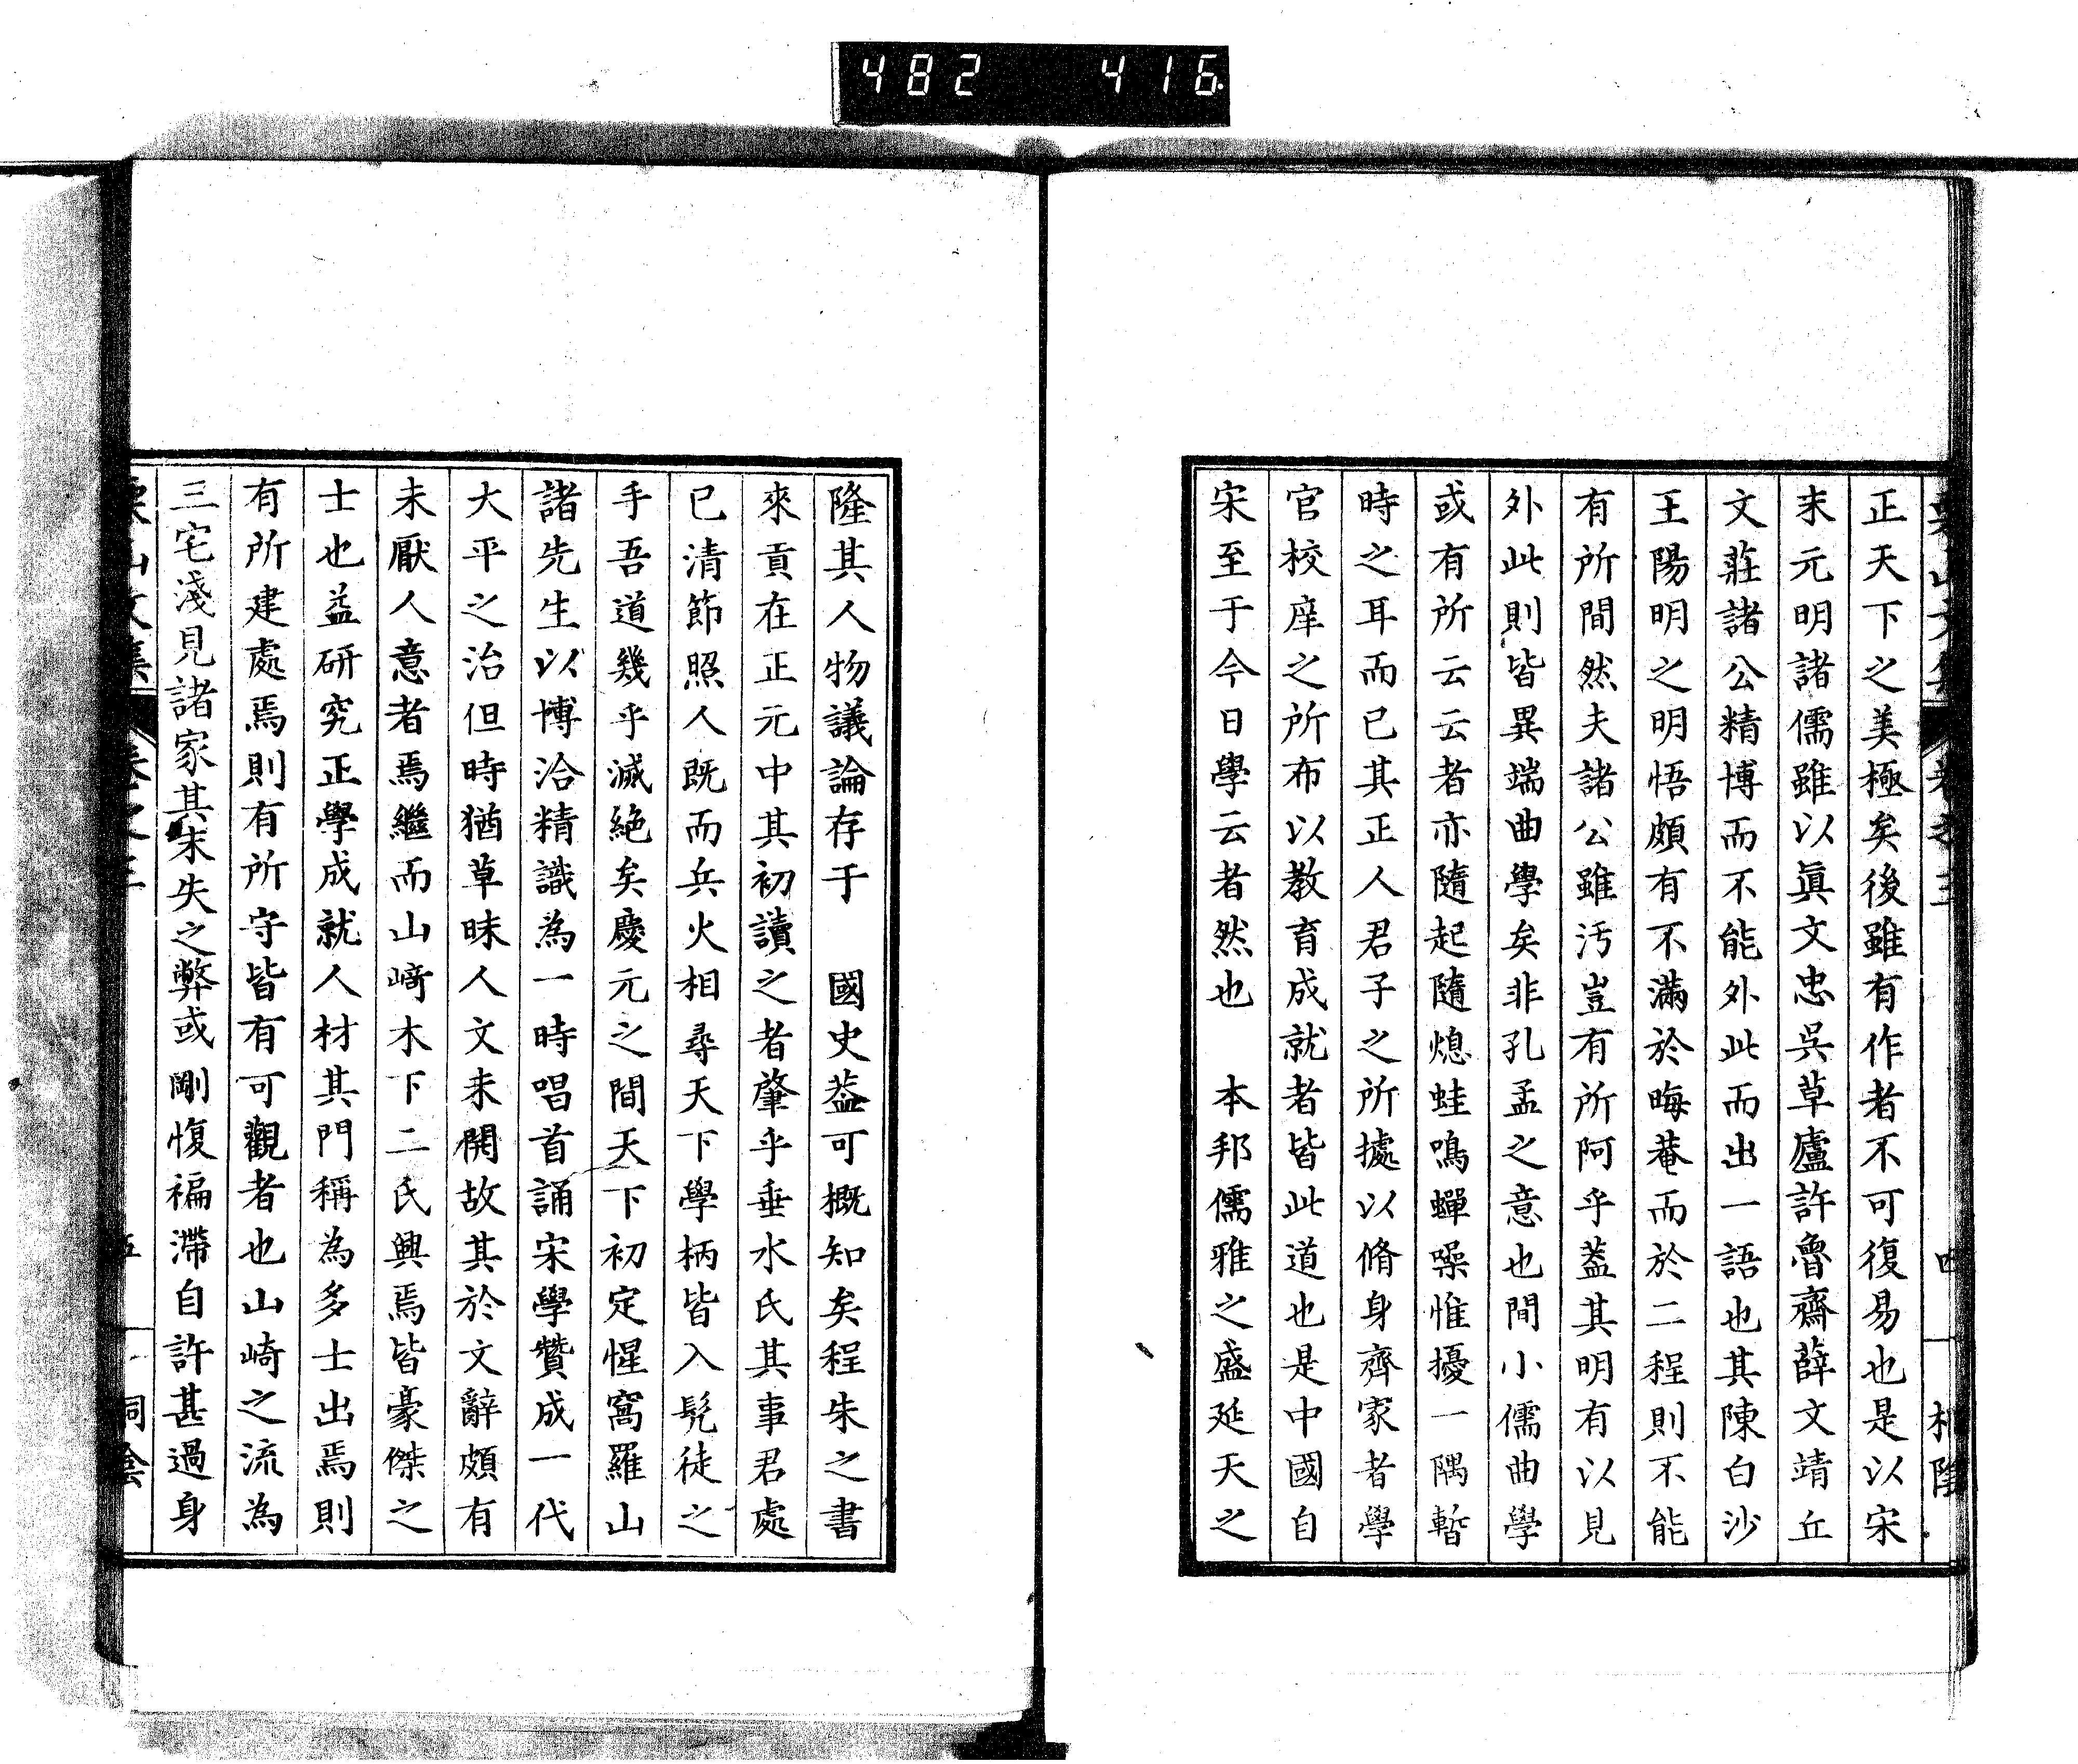 482 416
正天下之美極矣後雖有作者不可復易也是以宋
末元明諸儒雖以眞文忠吳草廬許魯齋薛文靖丘
文莊諸公精博而不能外此而出一語也其陳白沙
王陽明之明悟頗有不滿於晦菴而於二程則不能
有所間然夫諸公雖汚豈有所阿乎葢其明有以見
外此則皆異端曲學矣非孔孟之意也間小儒曲學
或有所云云者亦隨起隨熄蛙鳴蟬噪惟擾一隅暫
時之耳而已其正人君子之所據以脩身齊家者學
官校庠之所布以教育成就者皆此道也是中國自
宋至于今日學云者然也　本邦儒雅之盛延天之
隆其人物議論存于　國史葢可概知矣程朱之書
來貢在正元中其初讀之者肇乎垂水氏其事君處
已清節照人既而兵火相尋天下學柄皆入髡徒之
手吾道幾乎滅絶矣慶元之間天下初定惺窩羅山
諸先生以博洽精識為一時唱首誦宋學贊成一代
大平之治但時猶草昧人文未開故其於文辭頗有
未厭人意者焉繼而山﨑木下二氏興焉皆豪傑之
士也益研究正學成就人材其門稱為多士出焉則
有所建處焉則有所守皆有可觀者也山崎之流為
三宅淺見諸家其末失之弊或剛愎褊滯自許甚過身